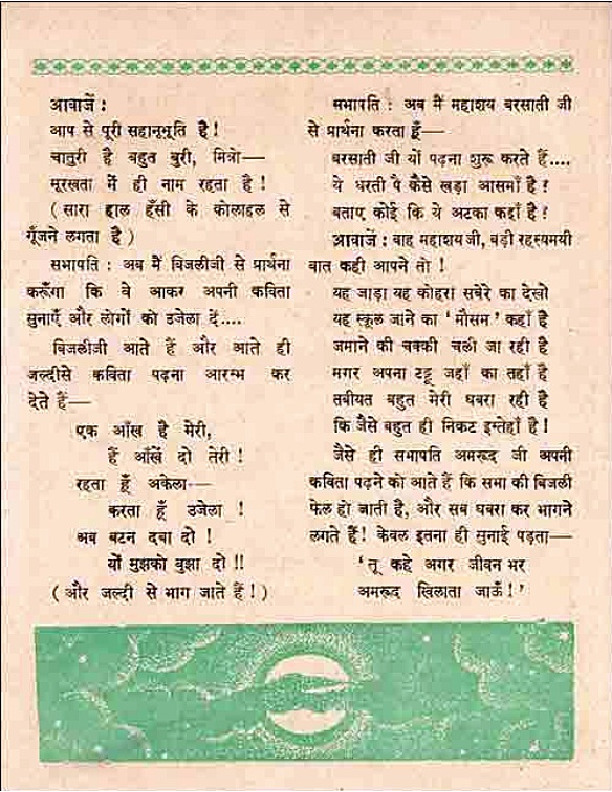 आवाजें :
आप से पूरी सहानुभूति है !
चातुरी है बहुत बुरी, मित्रो—
मूरखता में ही नाम रहता है !
( सारा हाल हँसी के कोलाहल से
गूँजने लगता है )
सभापति : अब मैं बिजलीजी से प्रार्थना
करूँगा कि वे आकर अपनी कविता
सुनाएँ और लोगों को उजेला दें....
बिजलीजी आते हैं और आते ही
जल्दीसे कविता पढ़ना आरम्भ कर
देते हैं—
एक आँख है मेरी,
हैं आँखें दो तेरी !
रहता हूँ अकेला—
करता हूँ उजेला !
अब बटन दबा दो !
यों मुझको बुझा दो !!
( और जल्दी से भाग जाते हैं ! )
सभापति : अब मैं महाशय बरसाती जी
से प्रार्थना करता हूँ—
बरसाती जी यों पढ़ना शुरू करते हैं....
ये धरती पै कैसे खड़ा आसमाँ है ?
बताए कोई कि ये अटका कहाँ है ?
आवाजें : वाह महाशय जी, बड़ी रहस्यमयी
बात कही आपने तो !
यह जाड़ा यह कोहरा सबेरे का देखो
यह स्कूल जाने का ‘ मौसम ’ कहाँ है
जमाने की चक्की चली जा रही है
मगर अपना टट्टू जहाँ का तहाँ है
तबीयत बहुत मेरी घबरा रही है
कि जैसे बहुत ही निकट इम्तेहाँ है !
जैसे ही सभापति अमरूद जी अपनी
कविता पढ़ने को आते हैं कि सभा की बिजली
फेल हो जाती है, और सब घबरा कर भागने
लगते हैं ! केवल इतना ही सुनाई पड़ता—
‘ तू कहे अगर जीवन भर
अमरूद खिलाता जाऊँ ! ’